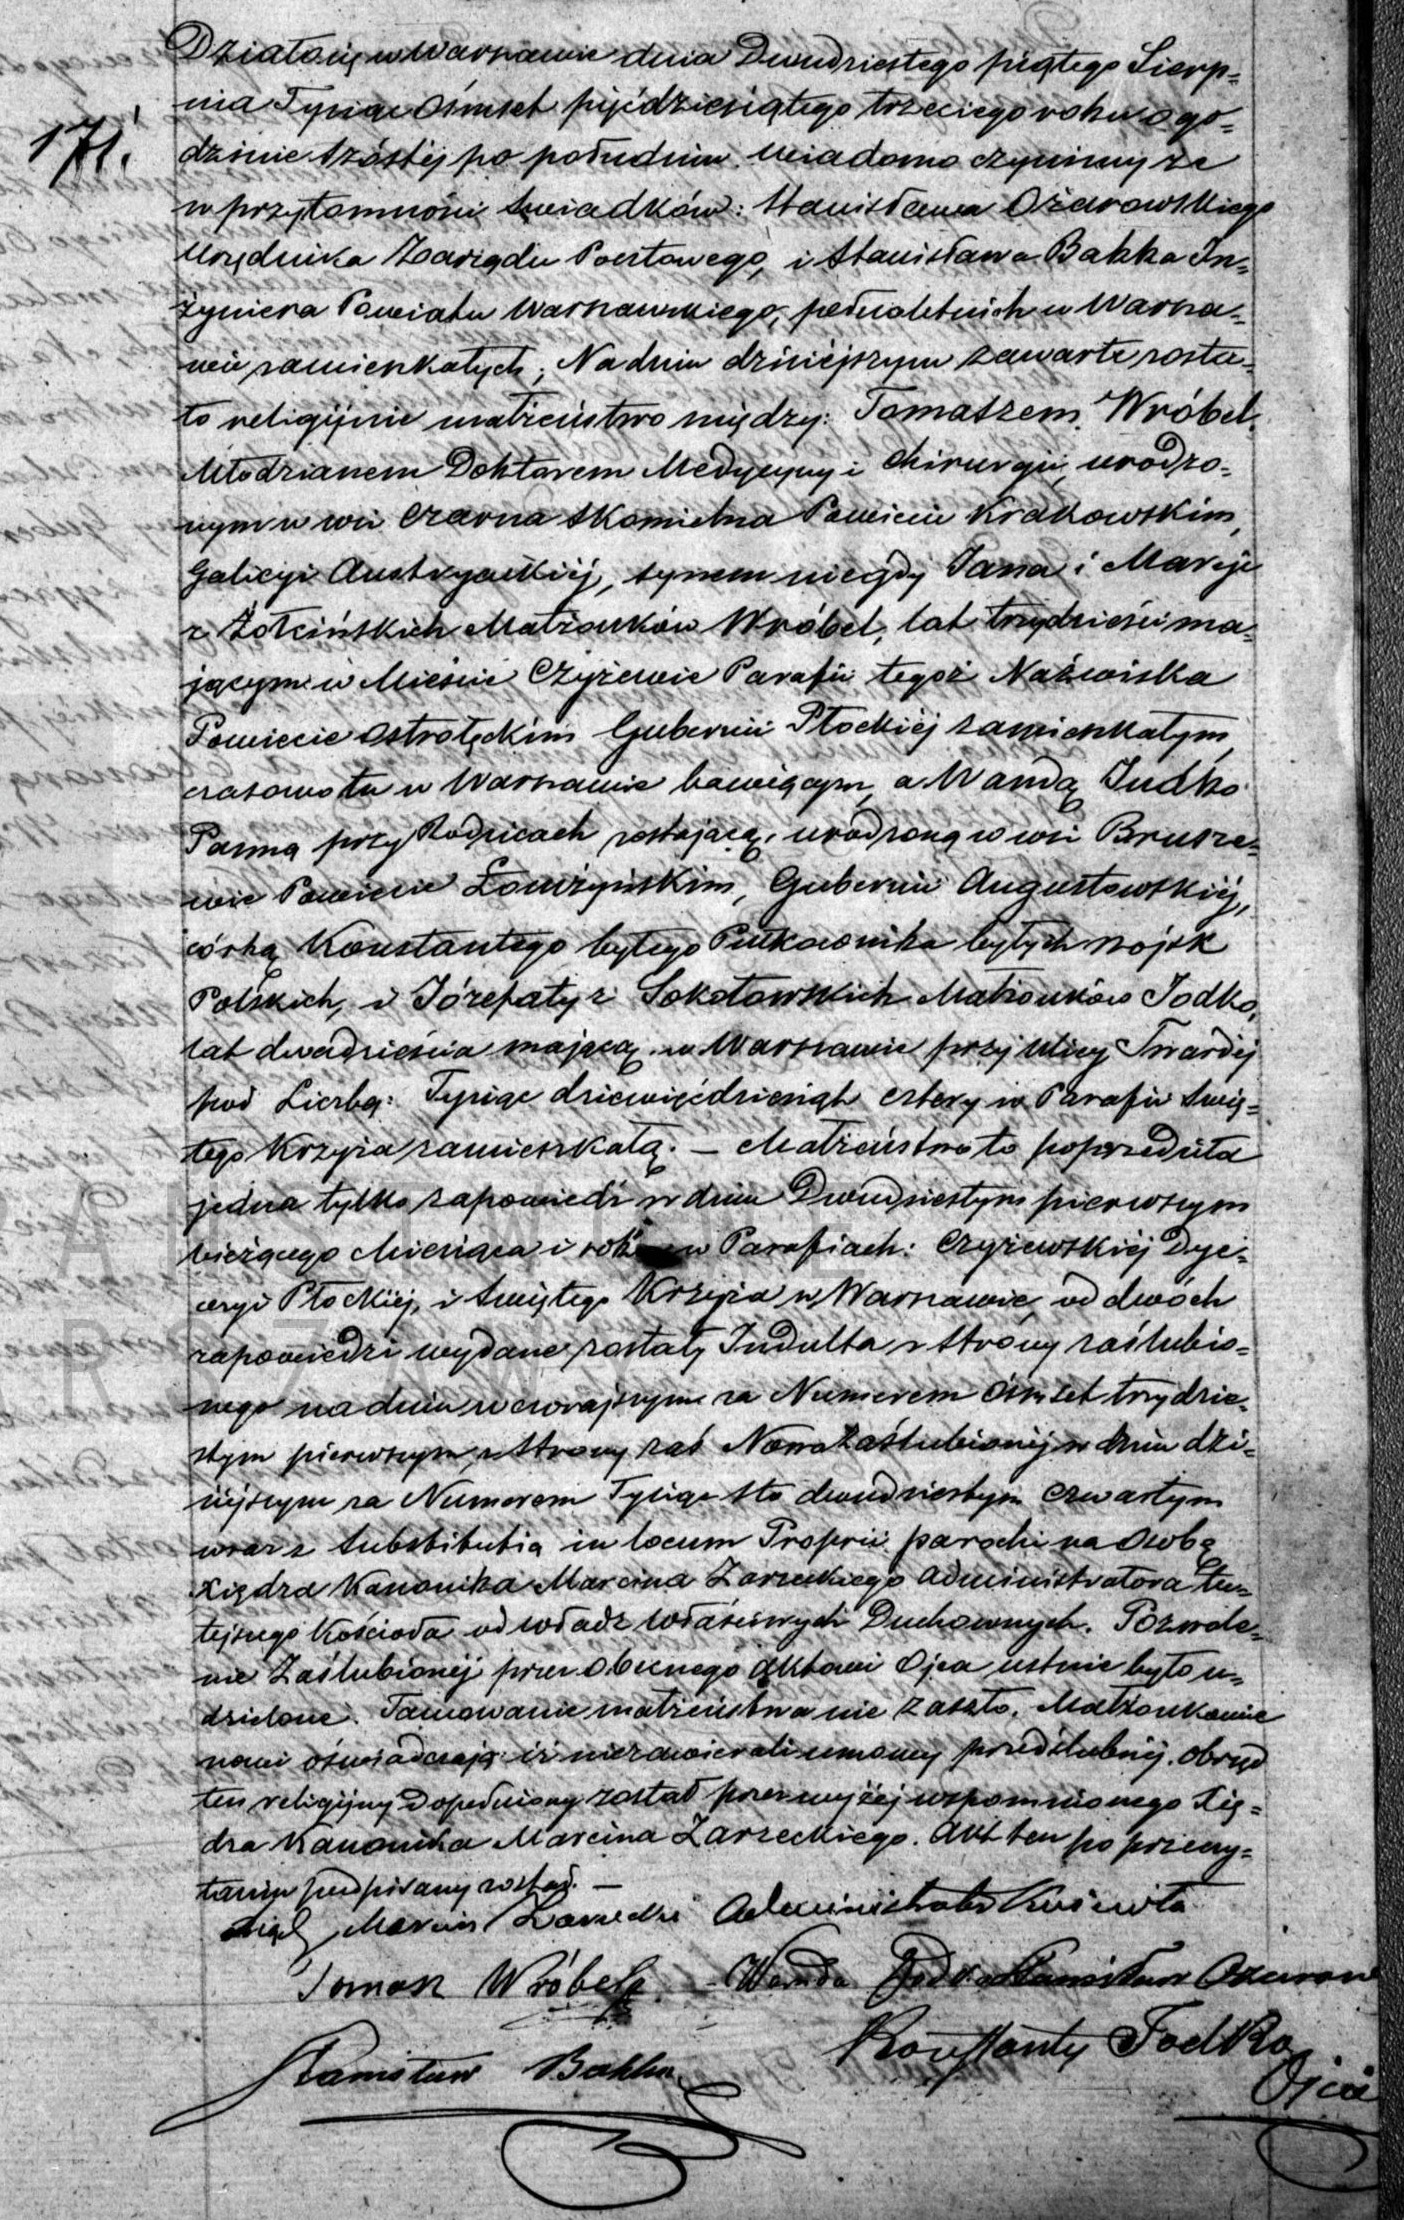 171.
Działo się w Warszawie dnia Dwudziestego piątego Sierp=
nia Tysiąc Ośmset pięćdziesiątego trzeciego roku o go=
dzinie szóstéj po południu. Wiadomo czyniemy że
w przytomności świadków: Stanisława Ożarowskiego
Urzędnika Zarządu Pocztowego, i Stanisława Bakka In=
żyniera Powiatu Warszawskiego, pełnoletnich w Warsza=
wie zamieszkałych; Na dniu dzisiejszym zawarte zosta=
ło religijnie małżeństwo między: Tomaszem Wróbel,
Młodzianem Doktorem Medycyny i Chirurgii, urodzo=
nym w wsi Czarna Skomielna Powiecie Krakowskim,
Galicyi Austryackiéj, synem niegdy Jana i Maryi
z Żołcińskich Małżonków Wróbel, lat trzydzieści ma=
jącym w Mieście Czyżewie Parafii tegoż Nazwiska
Powiecie Ostrołęckim Gubernii Płockiéj zamieszkałym,
czasowo tu w Warszawie bawiącym, a Wandą Judko
Panną przy Rodzicach zostającą, urodzoną w wsi Brusze=
wie Powiecie Łomżyńskim, Gubernii Augustowskiéj,
córką Konstantego byłego Pułkownika byłych wojsk
Polskich, i Józefaty z Sokołowskich Małżonków Jodko,
lat dwadzieścia mającą, w Warszawie przy ulicy Twardéj
pod Liczbą: Tysiąc dziewięćdziesiąt cztery w Parafii Świę=
tego Krzyża zamieszkałą. — Małżeństwo to poprzedziła
jedna tylko zapowiedź w dniu Dwudziestym pierwszym
bieżącego Miesiąca i roku w Parafiach: Czyżewskiéj Dye=
cezyi Płockiéj, i Świętego Krzyża w Warszawie, od dwóch
zapowiedzi wydane zostały Indulta z strony zaślubio=
nego na dniu wczorajszym za Numerem Ośmset trzydzie=
stym pierwszym, z strony zaś Nowozaślubionéj w dniu dzi=
siejszym za Numerem Tysiąc sto dwudziestym czwartym
wraz z Substitutią in locum Proprii parochi na Osobę
Xiędza Kanonika Marcina Zarzeckiego Administratora tu=
tejszego Kościoła od władz właściwych Duchownych. Pozwole=
nie Zaślubionéj przez obecnego Aktowi Ojca ustnie było u=
dzielone. Tamowanie małżeństwa nie zaszło. Małżonkowie
nowi oświadczają iż niezawierali umowy przedślubnéj. Obrzęd
ten religijny dopełniony został przez wyżéj wspomnionego Xię=
dza Kanonika Marcina Zarzeckiego. Akt ten po przeczy=
taniu podpisany został. —
Marcin Zarzecki Administrator Kościoła
Tomasz Wróbel. Wanda Jodko Stanisław Ożarow
Stanisław Bakka
Konstanty Jodko
Ojciec